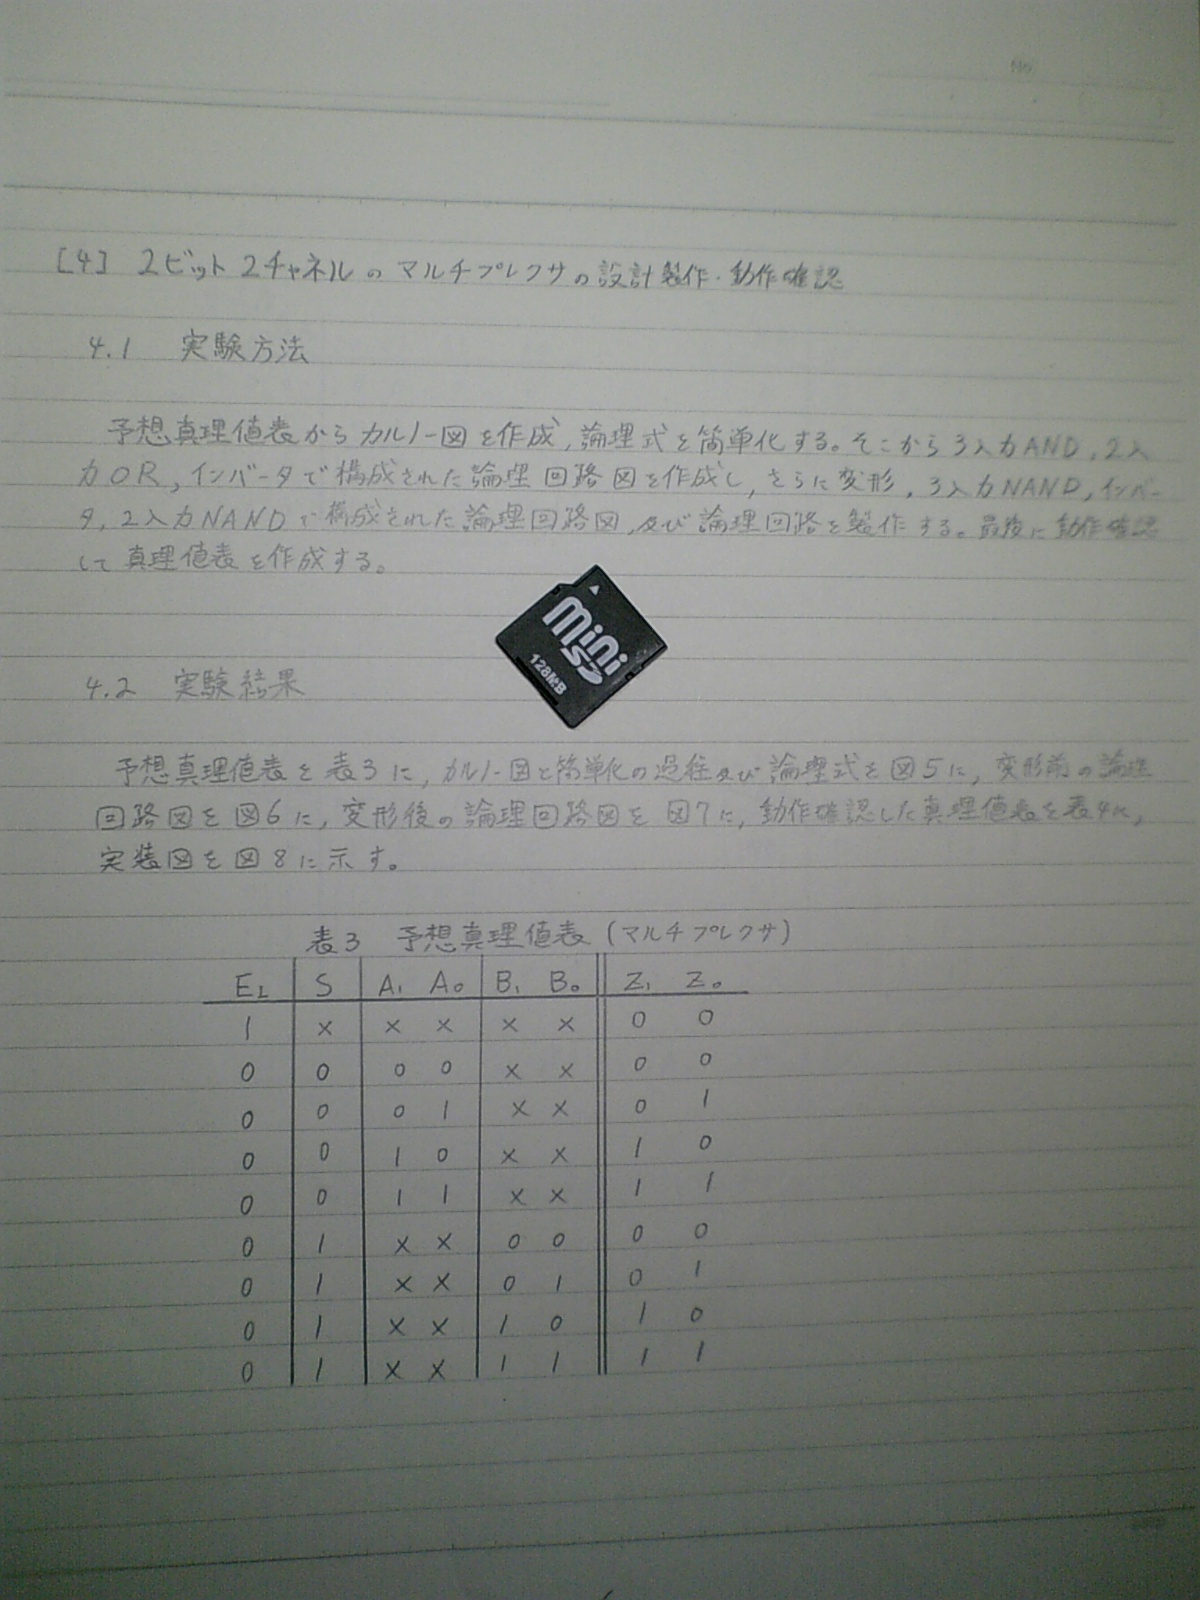 No
[4] 2ビット2チャネルのマルチプレクサの設計製作・動作確認
4.1 実験方法
予想真理値表からカルノー図を作成,論理式を簡単化する。そこから3入力AND,2入
力OR,インバータで構成された論理回路図を作成し,さらに変形,3入力NAND,インバー
タ,2入力NANDで構成された論理回路図,及び論理回路を製作する。最後に動作確認
して真理値表を作成する。
mini
SD
128MB
4.2 実験結果
予想真理値表を表3に,カルノー図と簡単化の過程及び論理式を図5に,変形前の論理
回路図を図6に,変形後の論理回路図を図7に,動作確認した真理値表を表4に,
実装図を図8に示す。
表3 予想真理値表(マルチプレクサ)
E_L S A₁ A₀ B₁ B₀ Z₁ Z₀
1 × × × × × 0 0
0 0 0 0 × × 0 0
0 0 0 1 × × 0 1
0 0 1 0 × × 1 0
0 0 1 1 × × 1 1
0 1 × × 0 0 0 0
0 1 × × 0 1 0 1
0 1 × × 1 0 1 0
0 1 × × 1 1 1 1